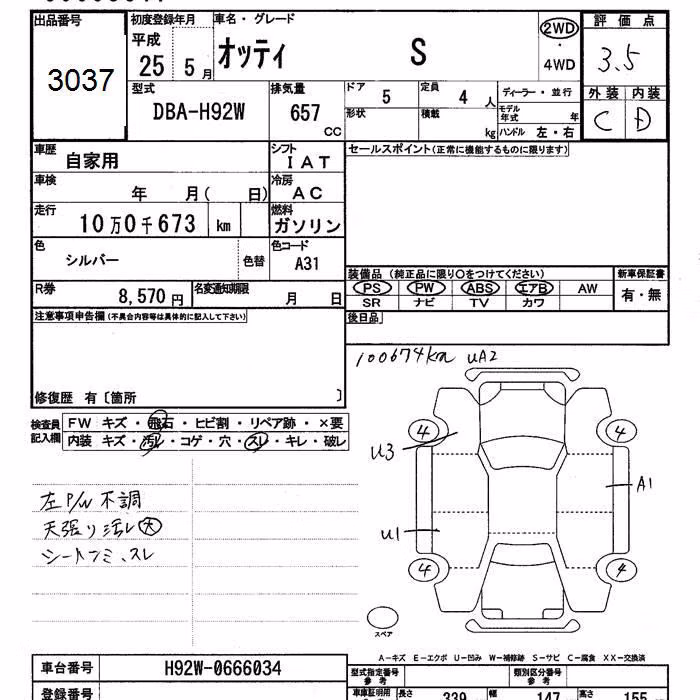 出品番号 初度登録年月 車名・グレード 2WD 評価点
平成 オッティ S ・ 3.5
3037 25 5月 4WD 外装 内装
型式 排気量 ドア 定員 ディーラー・並行 C D
DBA-H92W 657 CC 5 4 人 モデル年式 年
形状 積載 kg ハンドル 左・右
車歴 自家用 シフト IAT セールスポイント(正常に機能するものに限ります)
車検 年 月( 日) 冷房 AC
走行 10万0千673 km 燃料 ガソリン
色 シルバー 色替 色コード A31
装備品 (純正品に限り○をつけてください) 新車保証書
R券 8,570 円 名変通知期限 月 日 PS PW ABS エアB AW 有・無
SR ナビ TV カワ
注意事項申告欄(不具合内容等は具体的に記入して下さい) 後日品
100674km UA2
修復歴 有〔箇所 〕
検査員記入欄 FW キズ・飛石・ヒビ割・リペア跡・×要
内装 キズ・汚レ・コゲ・穴・スレ・キレ・破レ
4 4
U3
左P/W不調 A1
天張り汚レ大 U1
シートシミ、スレ
4 4
スペア
A－キズ E－エクボ U－凹み W－補修跡 S－サビ C－腐食 XX－交換済
車台番号 H92W-0666034 型式指定番号 参考 類別区分番号 参考
登録番号 車庫証明用 長さ 339 幅 147 高さ 155